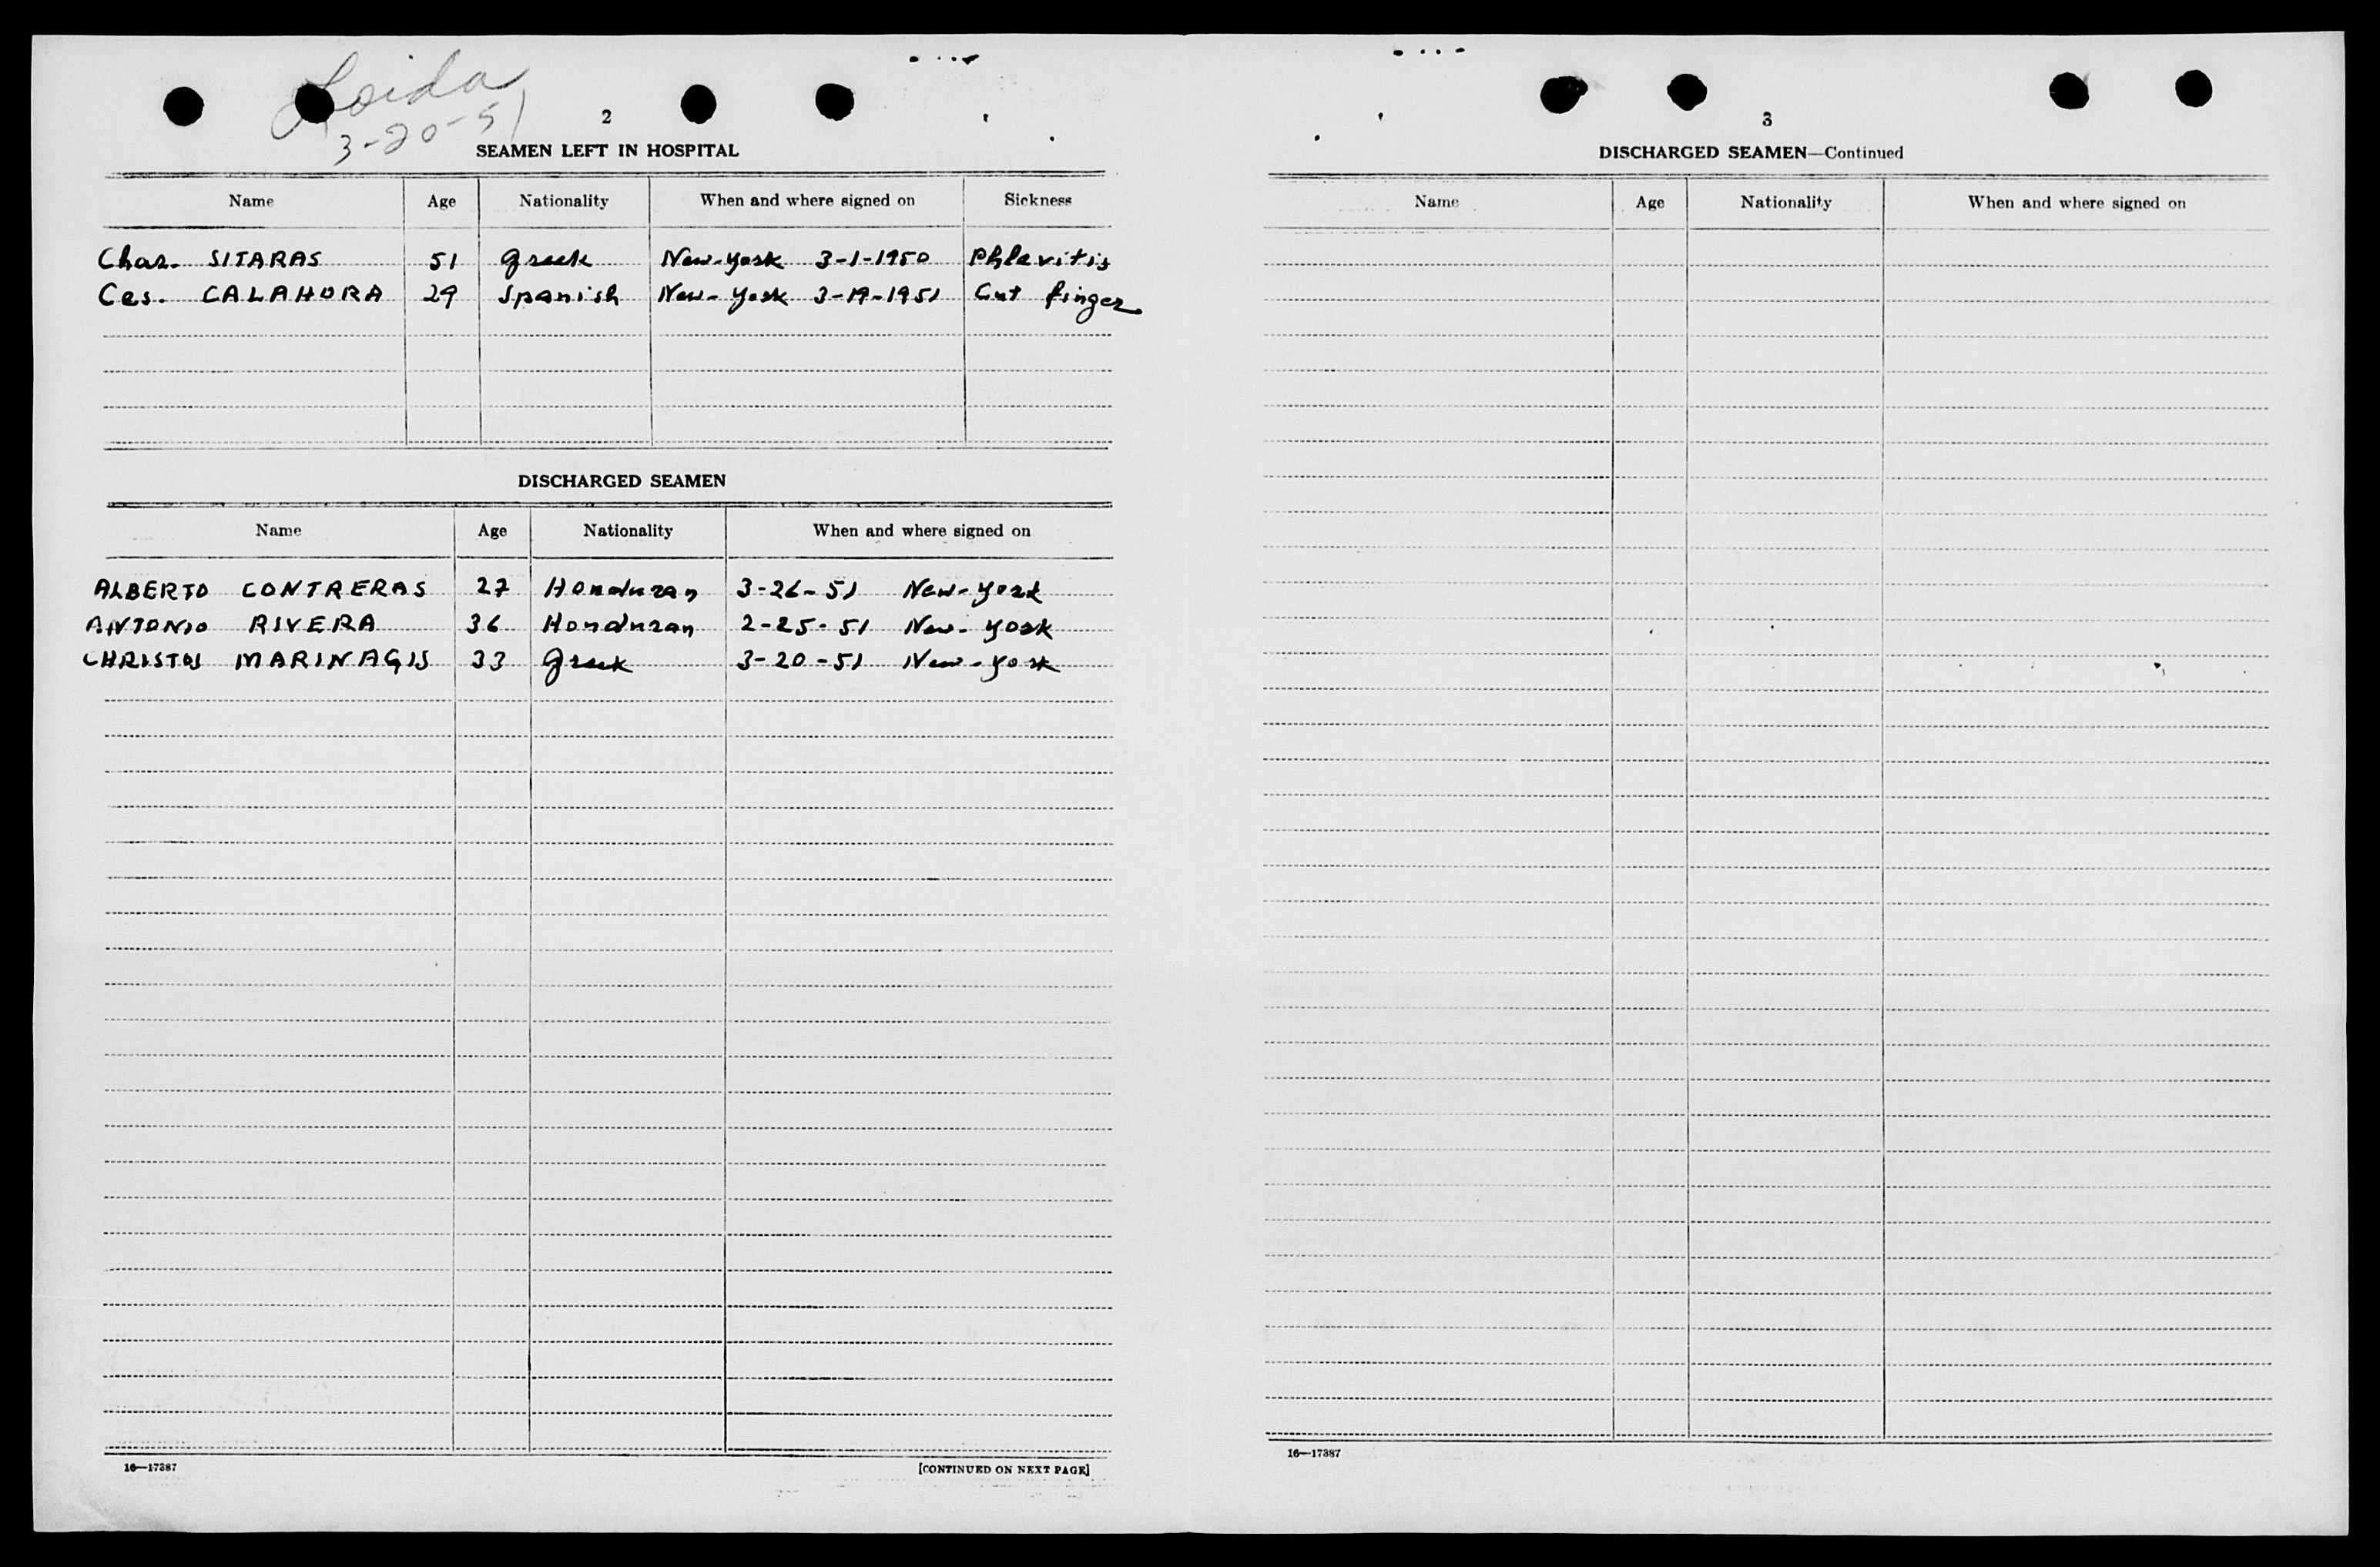 Loida
3-20-51
2
SEAMEN LEFT IN HOSPITAL
Name Age Nationality When and where signed on Sickness
Char. SITARAS 51 Greek New-York 3-1-1950 Phlevitis
Ces. CALAHORA 29 Spanish New-York 3-19-1951 Cut finger
DISCHARGED SEAMEN
Name Age Nationality When and where signed on
ALBERTO CONTRERAS 27 Honduran 3-26-51 New-York
ANTONIO RIVERA 36 Honduran 2-25-51 New-York
CHRISTOS MARINAGIS 33 Greek 3-20-51 New-York
16—17387 [CONTINUED ON NEXT PAGE]
3
DISCHARGED SEAMEN—Continued
Name Age Nationality When and where signed on
16—17387